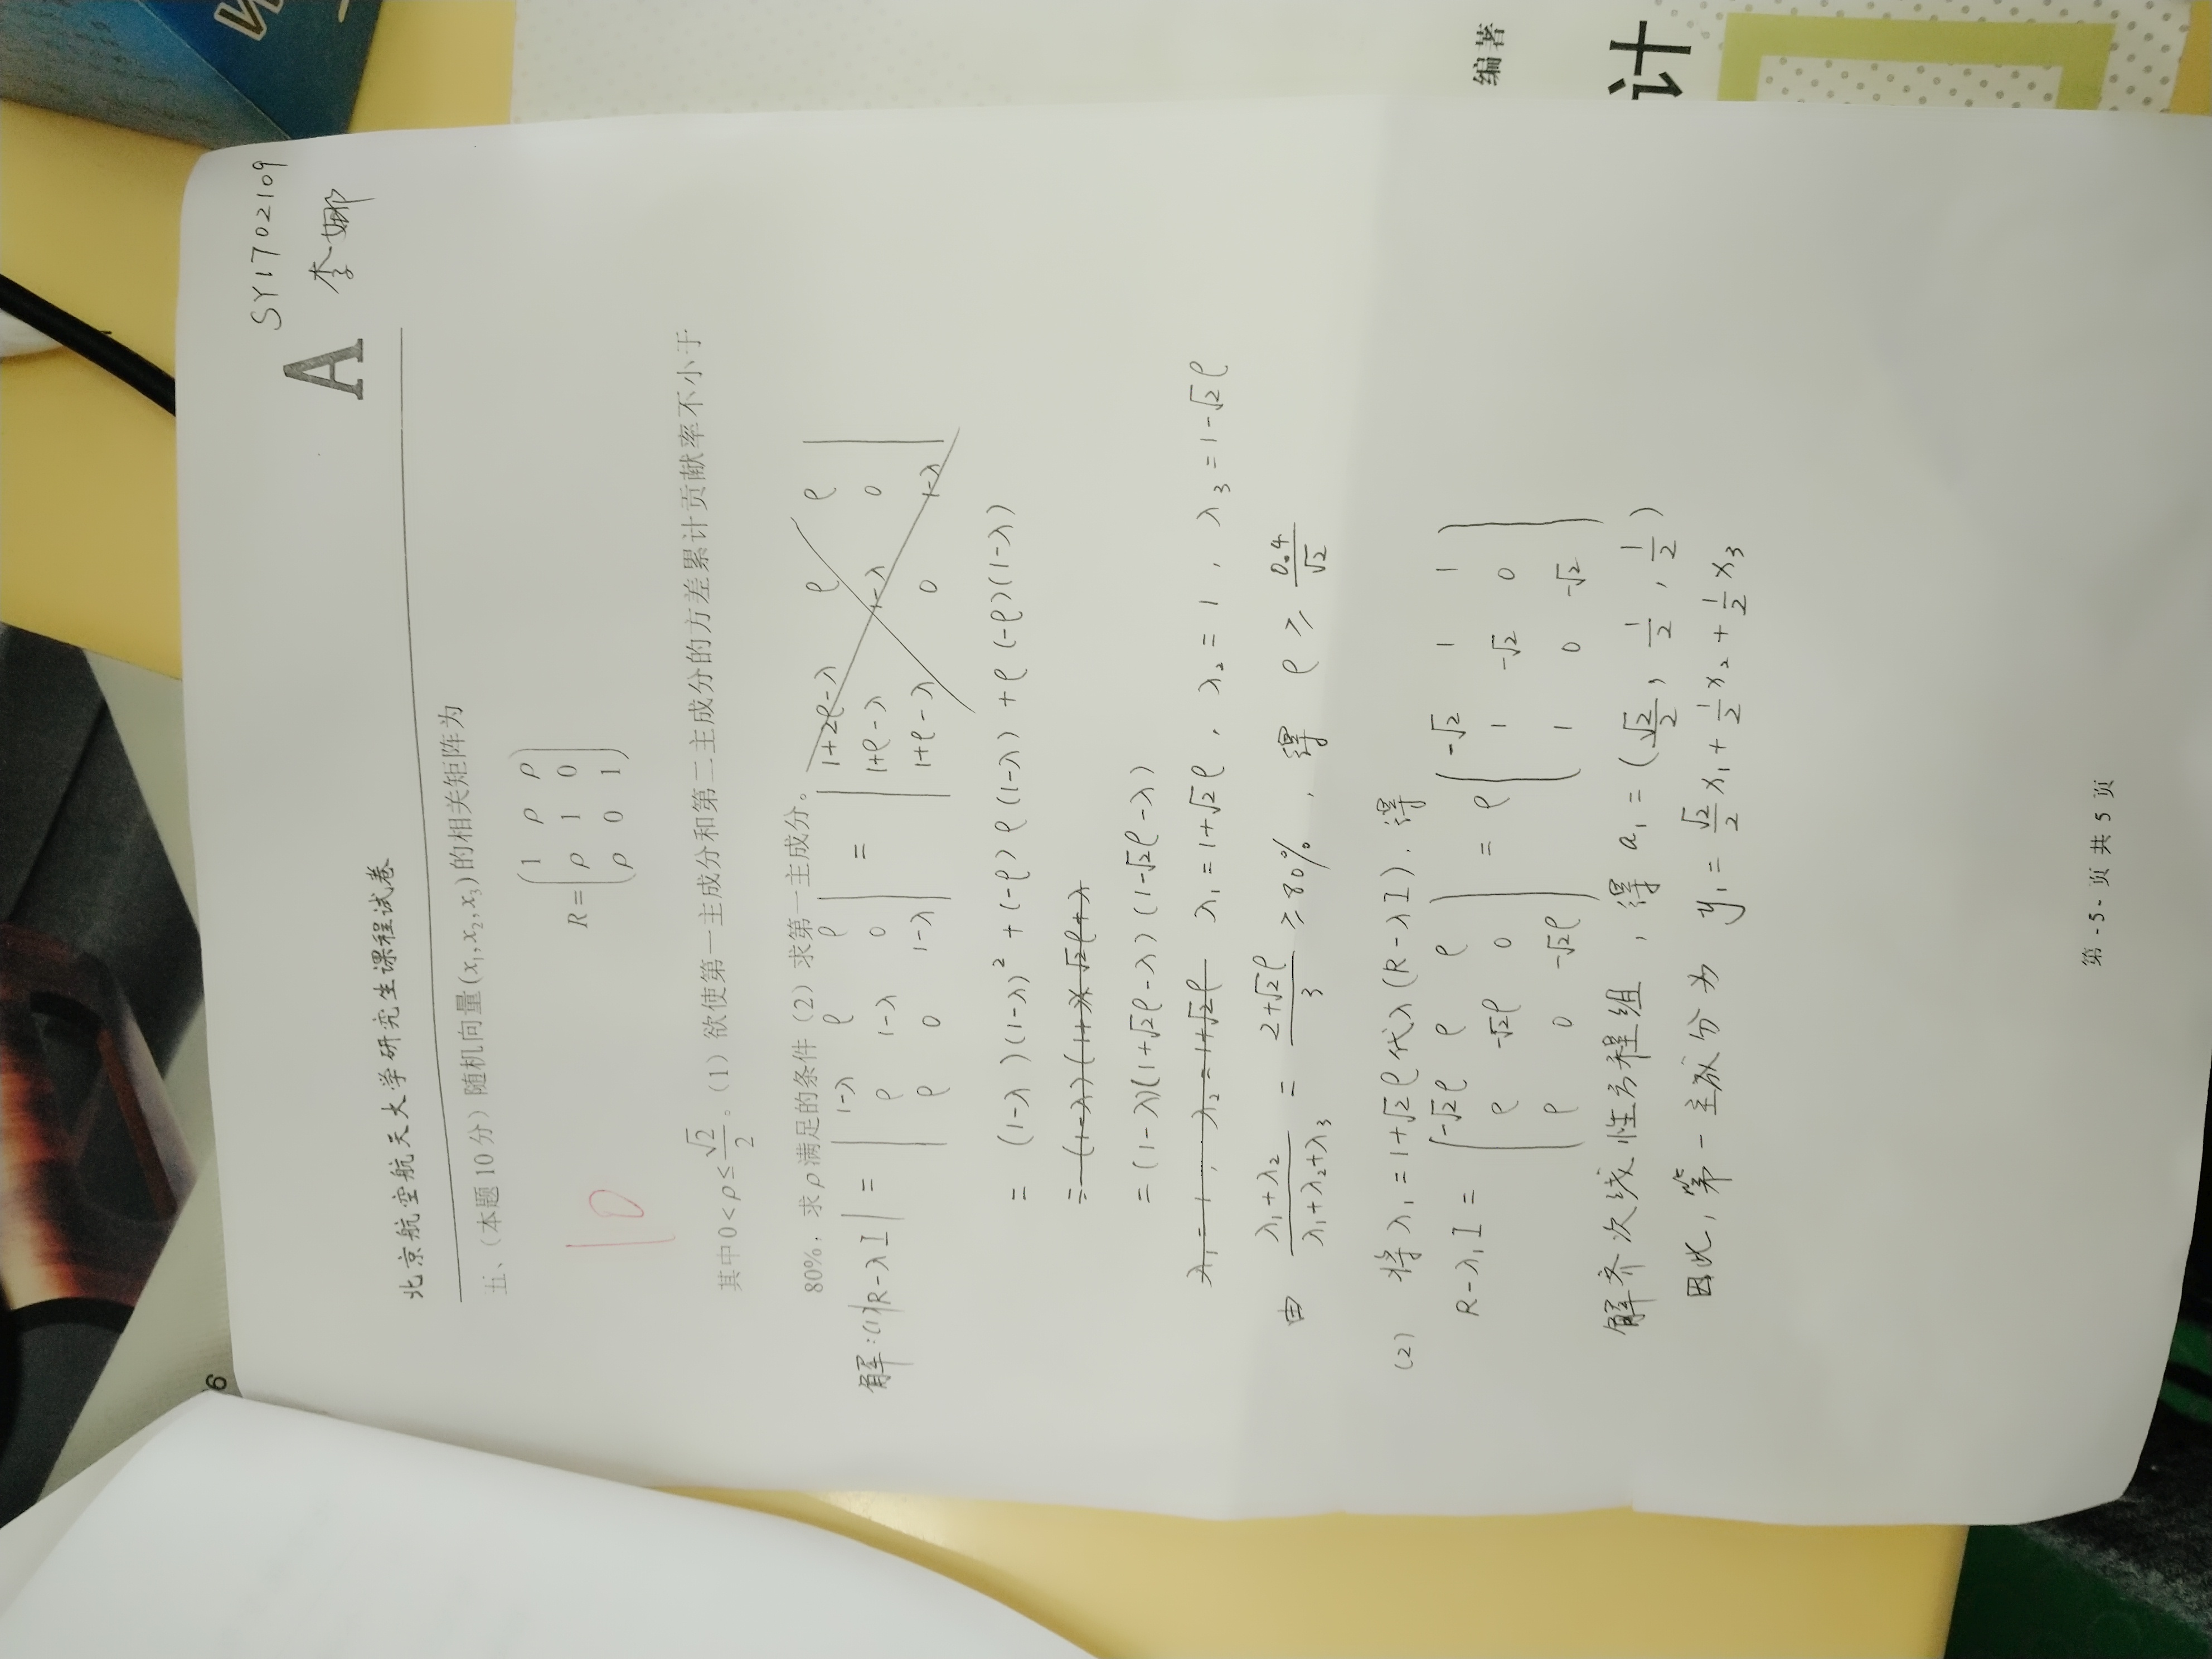 6
SY1702109
A
李娜
北京航空航天大学研究生课程试卷
五、（本题 10 分）随机向量(x₁,x₂,x₃)的相关矩阵为
R = (1 ρ ρ
ρ 1 0
ρ 0 1)
10
其中 0<ρ≤√2/2。（1）欲使第一主成分和第二主成分的方差累计贡献率不小于
80%，求ρ满足的条件（2）求第一主成分。
解:(1)|R-λI| = |1-λ ρ ρ; ρ 1-λ 0; ρ 0 1-λ| = |1+2ρ-λ ρ ρ; 1+ρ-λ 1-λ 0; 1+ρ-λ 0 1-λ|
= (1-λ)(1-λ)² + (-ρ)ρ(1-λ) + ρ(-ρ)(1-λ)
= (1-λ)(1-λ)²
= (1-λ)(1+√2ρ-λ)(1-√2ρ-λ)
λ₁=1, λ₂=1+√2ρ λ₁=1+√2ρ, λ₂=1, λ₃=1-√2ρ
由 (λ₁+λ₂)/(λ₁+λ₂+λ₃) = (2+√2ρ)/3 ≥ 80%, 得 ρ ≥ 0.4/√2
(2) 将λ₁=1+√2ρ代入(R-λI).得
R-λ₁I = (-√2ρ ρ ρ; ρ -√2ρ 0; ρ 0 -√2ρ) = ρ(-√2 1 1; 1 -√2 0; 1 0 -√2)
解齐次线性方程组, 得 a₁=(√2/2, 1/2, 1/2)
因此, 第一主成分为 y₁=√2/2 x₁+1/2 x₂+1/2 x₃
第 -5- 页 共 5 页
编著
计